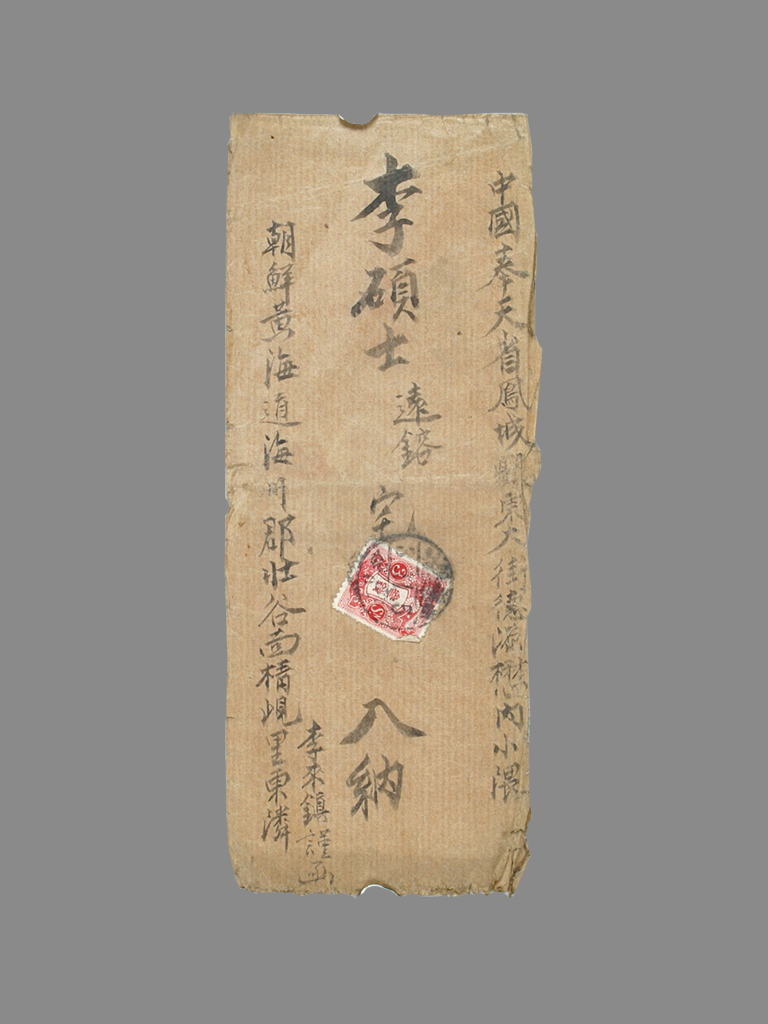 中國奉天省鳳城縣東大街德滋懋內小隈
李碩士 遠鎔 宅 入納
朝鮮黃海道海州郡壯谷面楕峴里東隣
李來鎭謹函